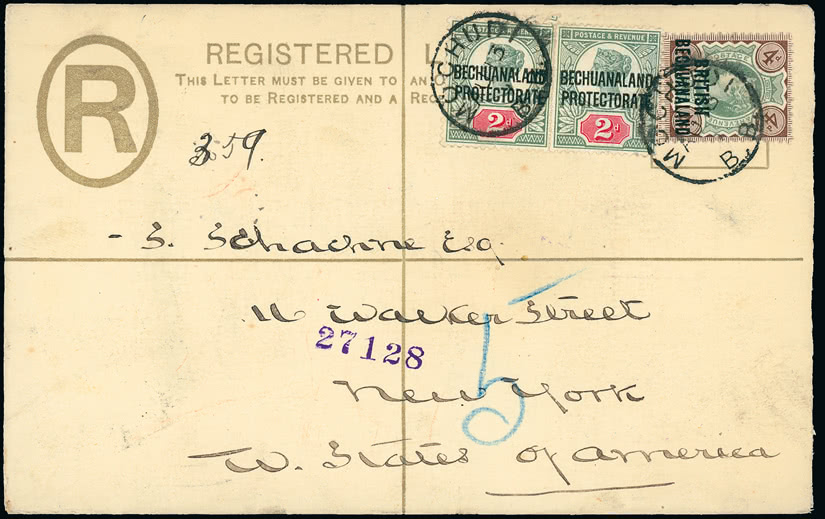 R
REGISTERED L
THIS LETTER MUST BE GIVEN TO AN
TO BE REGISTERED AND A REC
POSTAGE & REVENUE
BECHUANALAND
PROTECTORATE
2d
POSTAGE & REVENUE
BECHUANALAND
PROTECTORATE
2d
BRITISH
BECHUANALAND
4d
4d
MOCHUDI
B
359.
- S. Schachne Esq
11 Walker Street
27128
5
New York
U. States of America